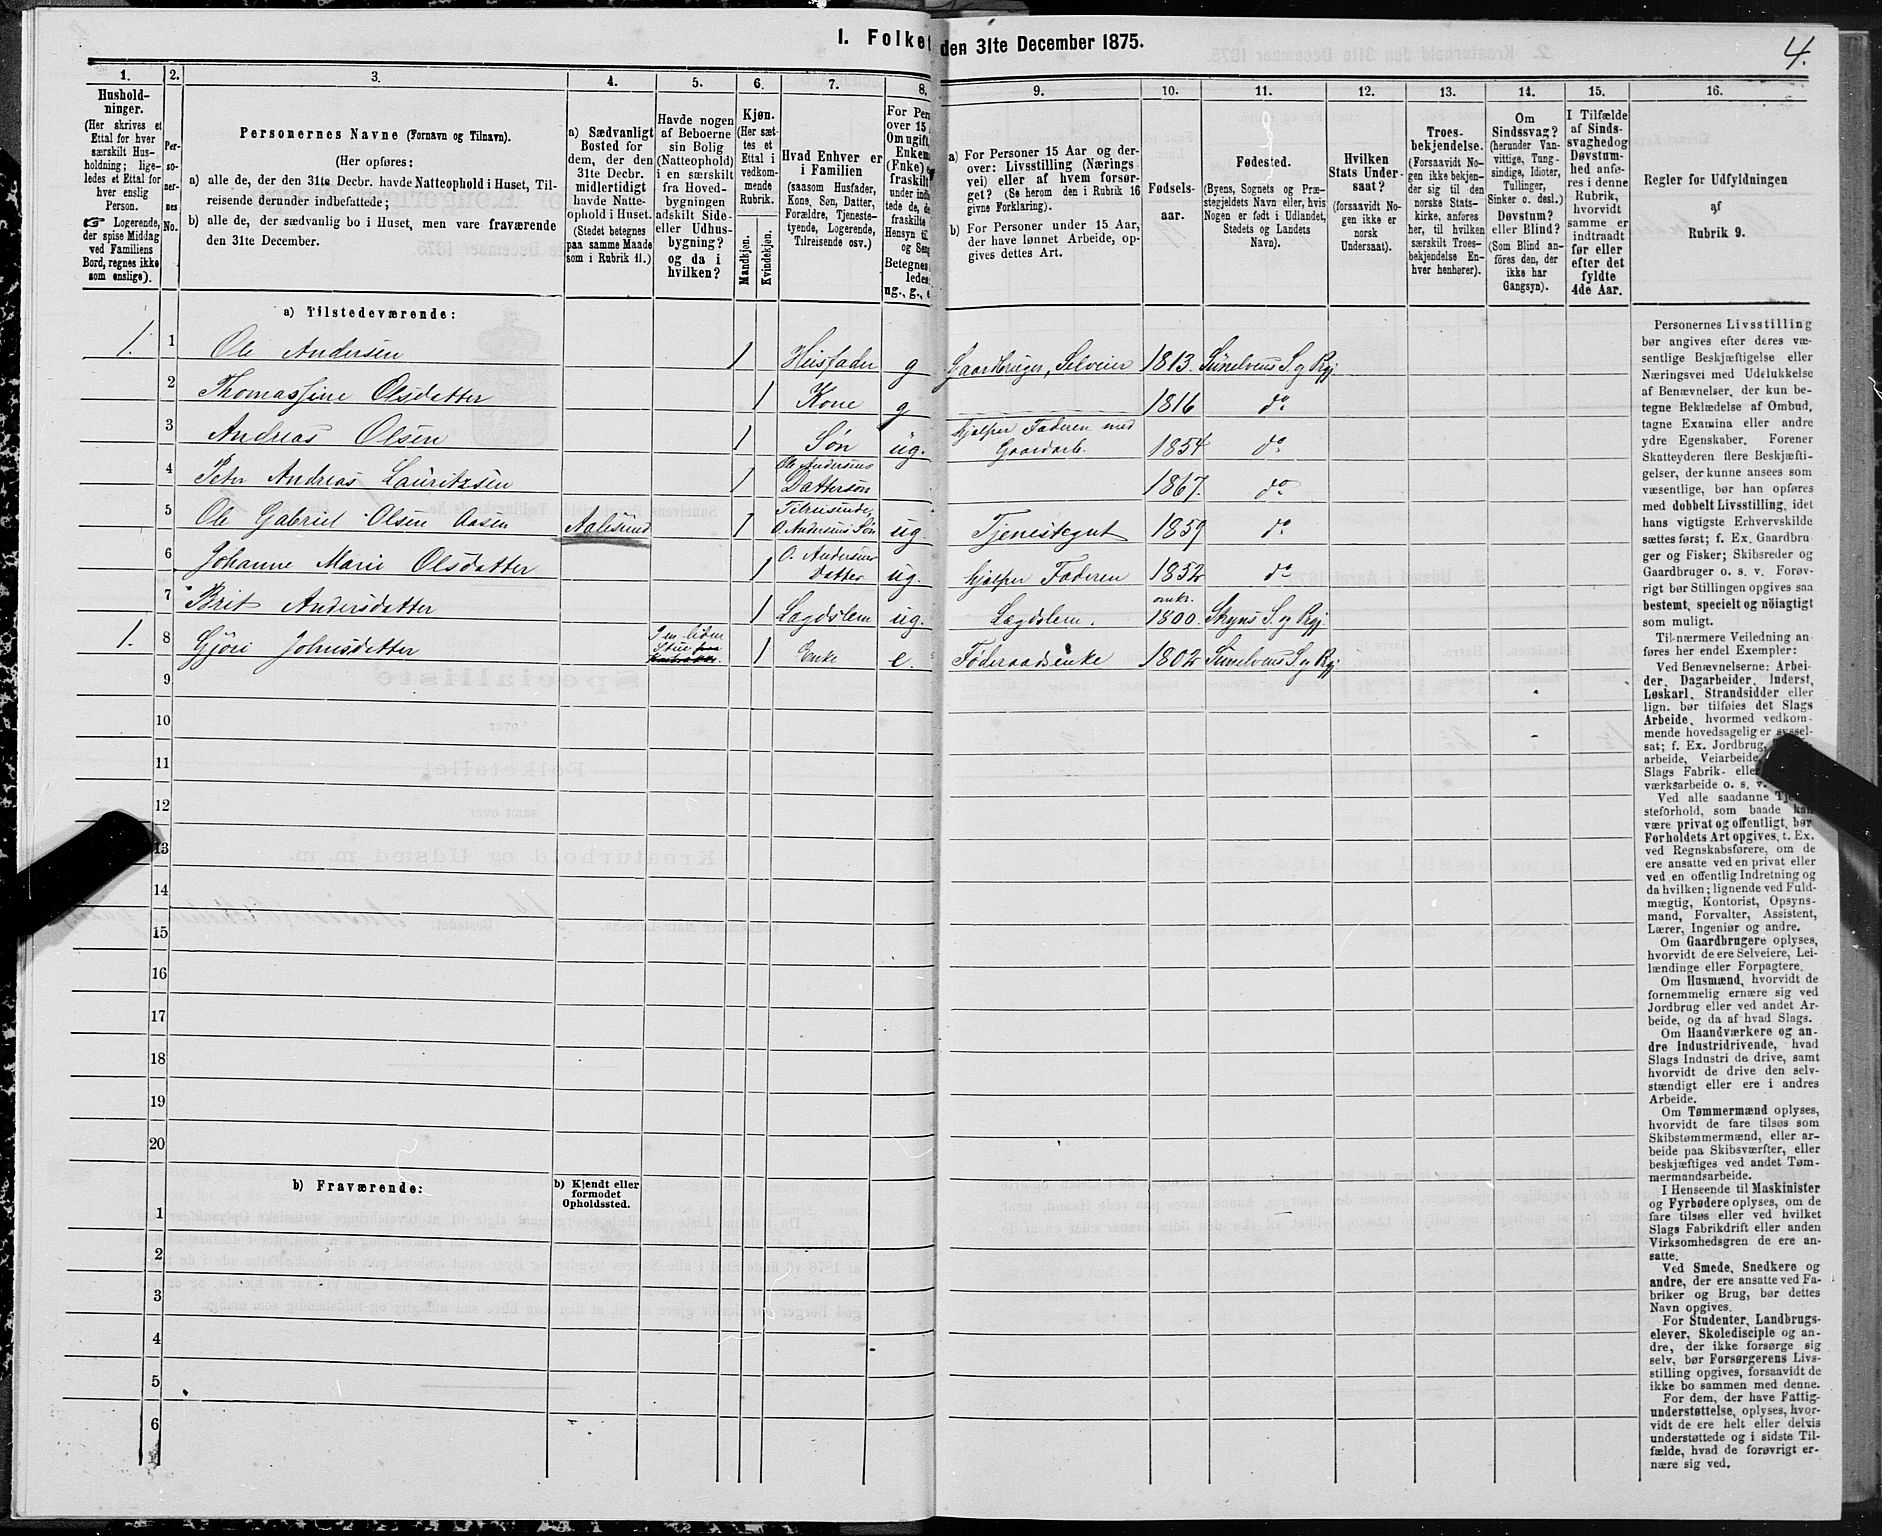 I. Folket
den 31te December 1875.
4.
1.
Hushold-
ninger.
(Her skrives et
Ettal for hver
særskilt Hus-
holdning; lige-
ledes et Ettal for
hver enslig
Person.
☞ Logerende,
der spise Middag
ved Familiens
Bord, regnes ikke
som enslige).
2.
Per-
so-
ner-
nes
No.
3.
Personernes Navne (Fornavn og Tilnavn).
(Her opføres:
a) alle de, der den 31te Decbr. havde Natteophold i Huset, Til-
reisende derunder indbefattede;
b) alle de, der sædvanlig bo i Huset, men vare fraværende
den 31te December.
4.
a) Sædvanligt
Bosted for
dem, der den
31te Decbr.
midlertidigt
havde Natte-
ophold i Huset.
(Stedet betegnes
paa samme Maade
som i Rubrik 11.)
5.
Havde nogen
af Beboerne
sin Bolig
(Natteophold)
i en særskilt
fra Hoved-
bygningen
adskilt Side-
eller Udhus-
bygning?
og da i
hvilken?
6.
Kjøn.
(Her sæt-
tes et
Ettal i
vedkom-
mende
Rubrik.
Mandkjøn.
Kvindekjøn.
7.
Hvad Enhver er
i Familien
(saasom Husfader,
Kone, Søn, Datter,
Forældre, Tjeneste-
tyende, Logerende,
Tilreisende osv.)
8.
For Per
over 15
Om ugift,
Enkem
(Enke) e
fraskilt
9.
a) For Personer 15 Aar og der-
over: Livsstilling (Nærings
vei) eller af hvem forsør-
get? (Se herom den i Rubrik 16
givne Forklaring).
b) For Personer under 15 Aar,
der have lønnet Arbeide, op-
gives dettes Art.
10.
Fødsels-
aar.
11.
Fødested.
(Byens, Sognets og Præ-
stegjeldets Navn eller, hvis
Nogen er født i Udlandet,
Stedets og Landets
Navn).
12.
Hvilken
Stats Under-
saat?
(forsaavidt No-
gen ikke er
norsk
Undersaat).
13.
Troes-
bekjendelse.
(Forsaavidt No-
gen ikke bekjen-
der sig til den
norske Stats-
kirke, anføres
her, til hvilken
særskilt Troes-
bekjendelse En-
hver henhører).
14.
Om
Sindssvag?
(herunder Van-
vittige, Tung-
sindige, Idioter,
Tullinger,
Sinker o. desl.)
Døvstum?
eller Blind?
(Som Blind an-
føres den, der
ikke har
Gangsyn).
15.
I Tilfælde
af Sinds-
svaghed og
Døvstum-
hed anfø-
res i denne
Rubrik,
hvorvidt
samme er
indtraadt
før eller
efter det
fyldte
4de Aar.
16.
Regler for Udfyldningen
af
Rubrik 9.
a) Tilstedeværende:
1. 1 Ole Andersen 1 Husfader g Gaardbruger, Selveier 1813. Sunelvens S. og Prgj.
2 Thomassine Olsdatter 1 Kone g 1816 do
3 Andreas Olsen 1 Søn ug. hjælper Faderen med Gaardarb. 1854 do
4 Peter Andreas Lauritzsen 1 Ole Andersens Dattersøn 1867. do
5 Ole Gabriel Olsen Aasen Aalesund 1 Tilreisende, O. Andersens Søn ug. Tjenestegut 1859 do
6 Johanne Marie Olsdatter 1 O. Andersens datter ug. hjælper Faderen 1852 do
7 Brit Andersdatter 1 Lægdslem ug. Lægdslem. omkr. 1800. S. og Prgj.
1. 8 Gjøri Johnsdatter I en liden Stue 1 Enke e. Føderaadsenke 1802 Sunelvens S. og Prgj.
9
10
11
12
13
14
15
16
17
18
19
20
b) Fraværende:
b) Kjendt eller
formodet
Opholdssted.
1
2
3
4
5
6
Personernes Livsstilling
bør angives efter deres væ-
sentlige Beskjæftigelse eller
Næringsvei med Udelukkelse
af Benævnelser, der kun be-
tegne Beklædelse af Ombud,
tagne Examina eller andre
ydre Egenskaber. Forener
Skatteyderen flere Beskjæfti-
gelser, der kunne ansees som
væsentlige, bør han opføres
med dobbelt Livsstilling, idet
hans vigtigste Erhvervskilde
sættes først; f. Ex. Gaardbru
ger og Fisker; Skibsreder og
Gaardbruger o. s. v. Forøv-
rigt bør Stillingen opgives saa
bestemt, specielt og nöiagtigt
som muligt.
Til nærmere Veiledning an-
føres her endel Exempler:
Ved Benævnelserne: Arbei-
der, Dagarbeider, Inderst,
Løskarl, Strandsidder eller
lign. bør tilføies det Slags
Arbeide, hvormed vedkom-
mende hovedsagelig er syssel-
sat; f. Ex. Jordbrug,
arbeide, Veiarbeide
Slags Fabrik- elle
værksarbeide o. s. v.
Ved alle saadanne Tje
steforhold, som baade kan
være privat og offentligt, bør
Forholdets Art opgives, t. Ex.
ved Regnskabsførere, om de
ere ansatte ved en privat eller
ved en offentlig Indretning og
da hvilken; lignende ved Fuld-
mægtig, Kontorist, Opsyns-
mand, Forvalter, Assistent,
Lærer, Ingeniør og andre.
Om Gaardbrugere oplyses,
hvorvidt de ere Selveiere, Lei-
lændinge eller Forpagtere.
Om Husmænd, hvorvidt de
fornemmelig ernære sig ved
Jordbrug eller ved andet Ar-
beide, og da af hvad Slags.
Om Haandværkere og an-
dre Industridrivende, hvad
Slags Industri de drive, samt
hvorvidt de drive den selv-
stændigt eller ere i andres
Arbeide.
Om Tømmermænd oplyses,
hvorvidt de fare tilsøs som
Skibstømmermænd, eller ar-
beide paa Skibsværfter, eller
beskjæftiges ved andet Tøm-
mermandsarbeide.
I Henseende til Maskinister
og Fyrbødere oplyses, om de
fare tilsøs eller ved hvilket
Slags Fabrikdrift eller anden
Virksomhedsgren de ere an-
satte.
Ved Smede, Snedkere og
andre, der ere ansatte ved Fa-
briker og Brug, bør dettes
Navn opgives.
For Studenter, Landbrugs-
elever, Skoledisciple og an-
dre, der ikke forsørge sig
selv, bør Forsørgerens Livs-
stilling opgives, forsaavidt de
ikke bo sammen med denne.
For dem, der have Fattig-
understøttelse, oplyses, hvor-
vidt de ere helt eller delvis
understøttede og i sidste Til-
fælde, hvad de forøvrigt er-
nære sig ved.